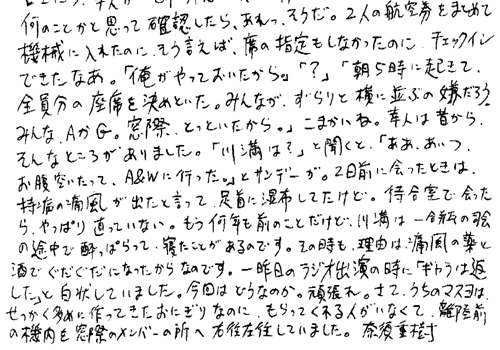 何のことかと思って確認したら、あれっ、そうだ。2人の航空券をまとめて
機械に入れたのに、そう言えば、席の指定もしなかったのに、チェックイン
できたなあ。「俺がやっておいたから。」「？」「朝5時に起きて、
全員分の座席を決めといた。みんなが、ずらりと横に並ぶの嫌だろう。
みんな、AかG。窓際、とっといたから。」こまかいね。幸人は昔から、
そんなところがありました。「川満は？」と聞くと、「ああ、あいつ、
お腹空いたって、A&Wに行った。」とサンデーが。2日前に会ったときは、
持病の痛風が出たと言って、足首に湿布してたけど。待合室で会った
ら、やっぱり直っていない。もう何年も前のことだけど、川満は一合瓶の
の途中で酔っぱらって、寝たことがあるのです。その時も、理由は痛風の薬と
酒でぐだぐだになったからなのです。一昨日のラジオ出演の時に「ギャラは返
した」と白状していました。今回はどうなのか。頑張れ。さて、うちのマスヨは、
せっかく多めに作ってきたおにぎりなのに、もらってくれる人がいなくて、離陸前
の機内を窓際のメンバーの所へ右往左往していました。奈須重樹